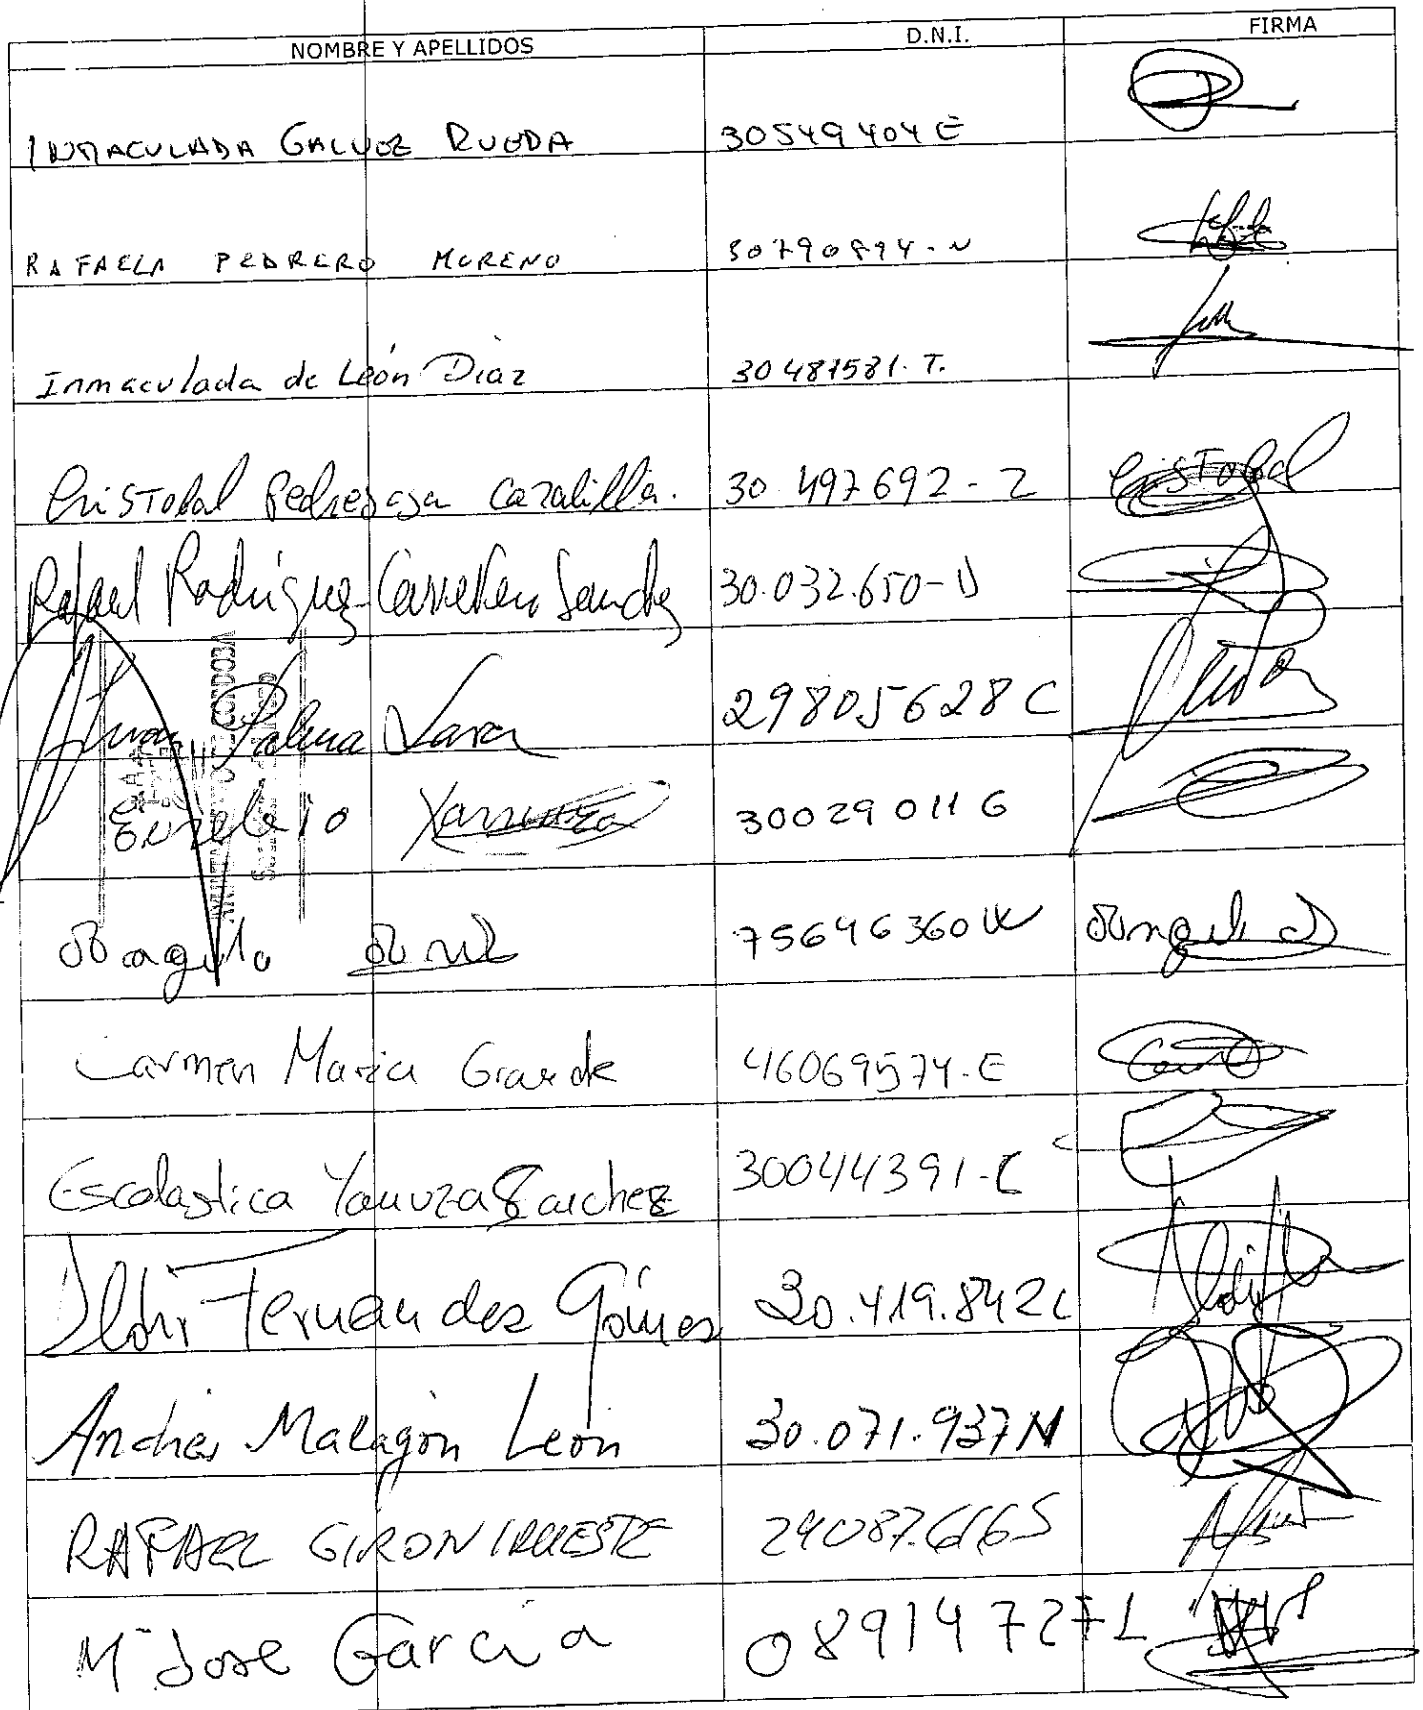 NOMBRE Y APELLIDOS D.N.I. FIRMA
INMACULADA GALVEZ RUEDA 30549404E
RAFAELA PEDRERO MORENO 30790894-N
Inmaculada de León Diaz 30481581.T.
Cristobal Pedregosa Cazalilla. 30.497692-Z Cristobal
Rafael Rodriguez-Carretero Sanchez 30.032.650-D
Juan Palma Lara 29805628C
Eusebio 30029011G
75646360W
Carmen Maria Grande 46069574-E
Escolastica Yamuza Sanchez 30044391-C
Fernandez Gómez 30.419.842C
Andres Malagón León 30.071.937N
RAFAEL GIRON INIESTE
Mª Jose Garcia 08914727L